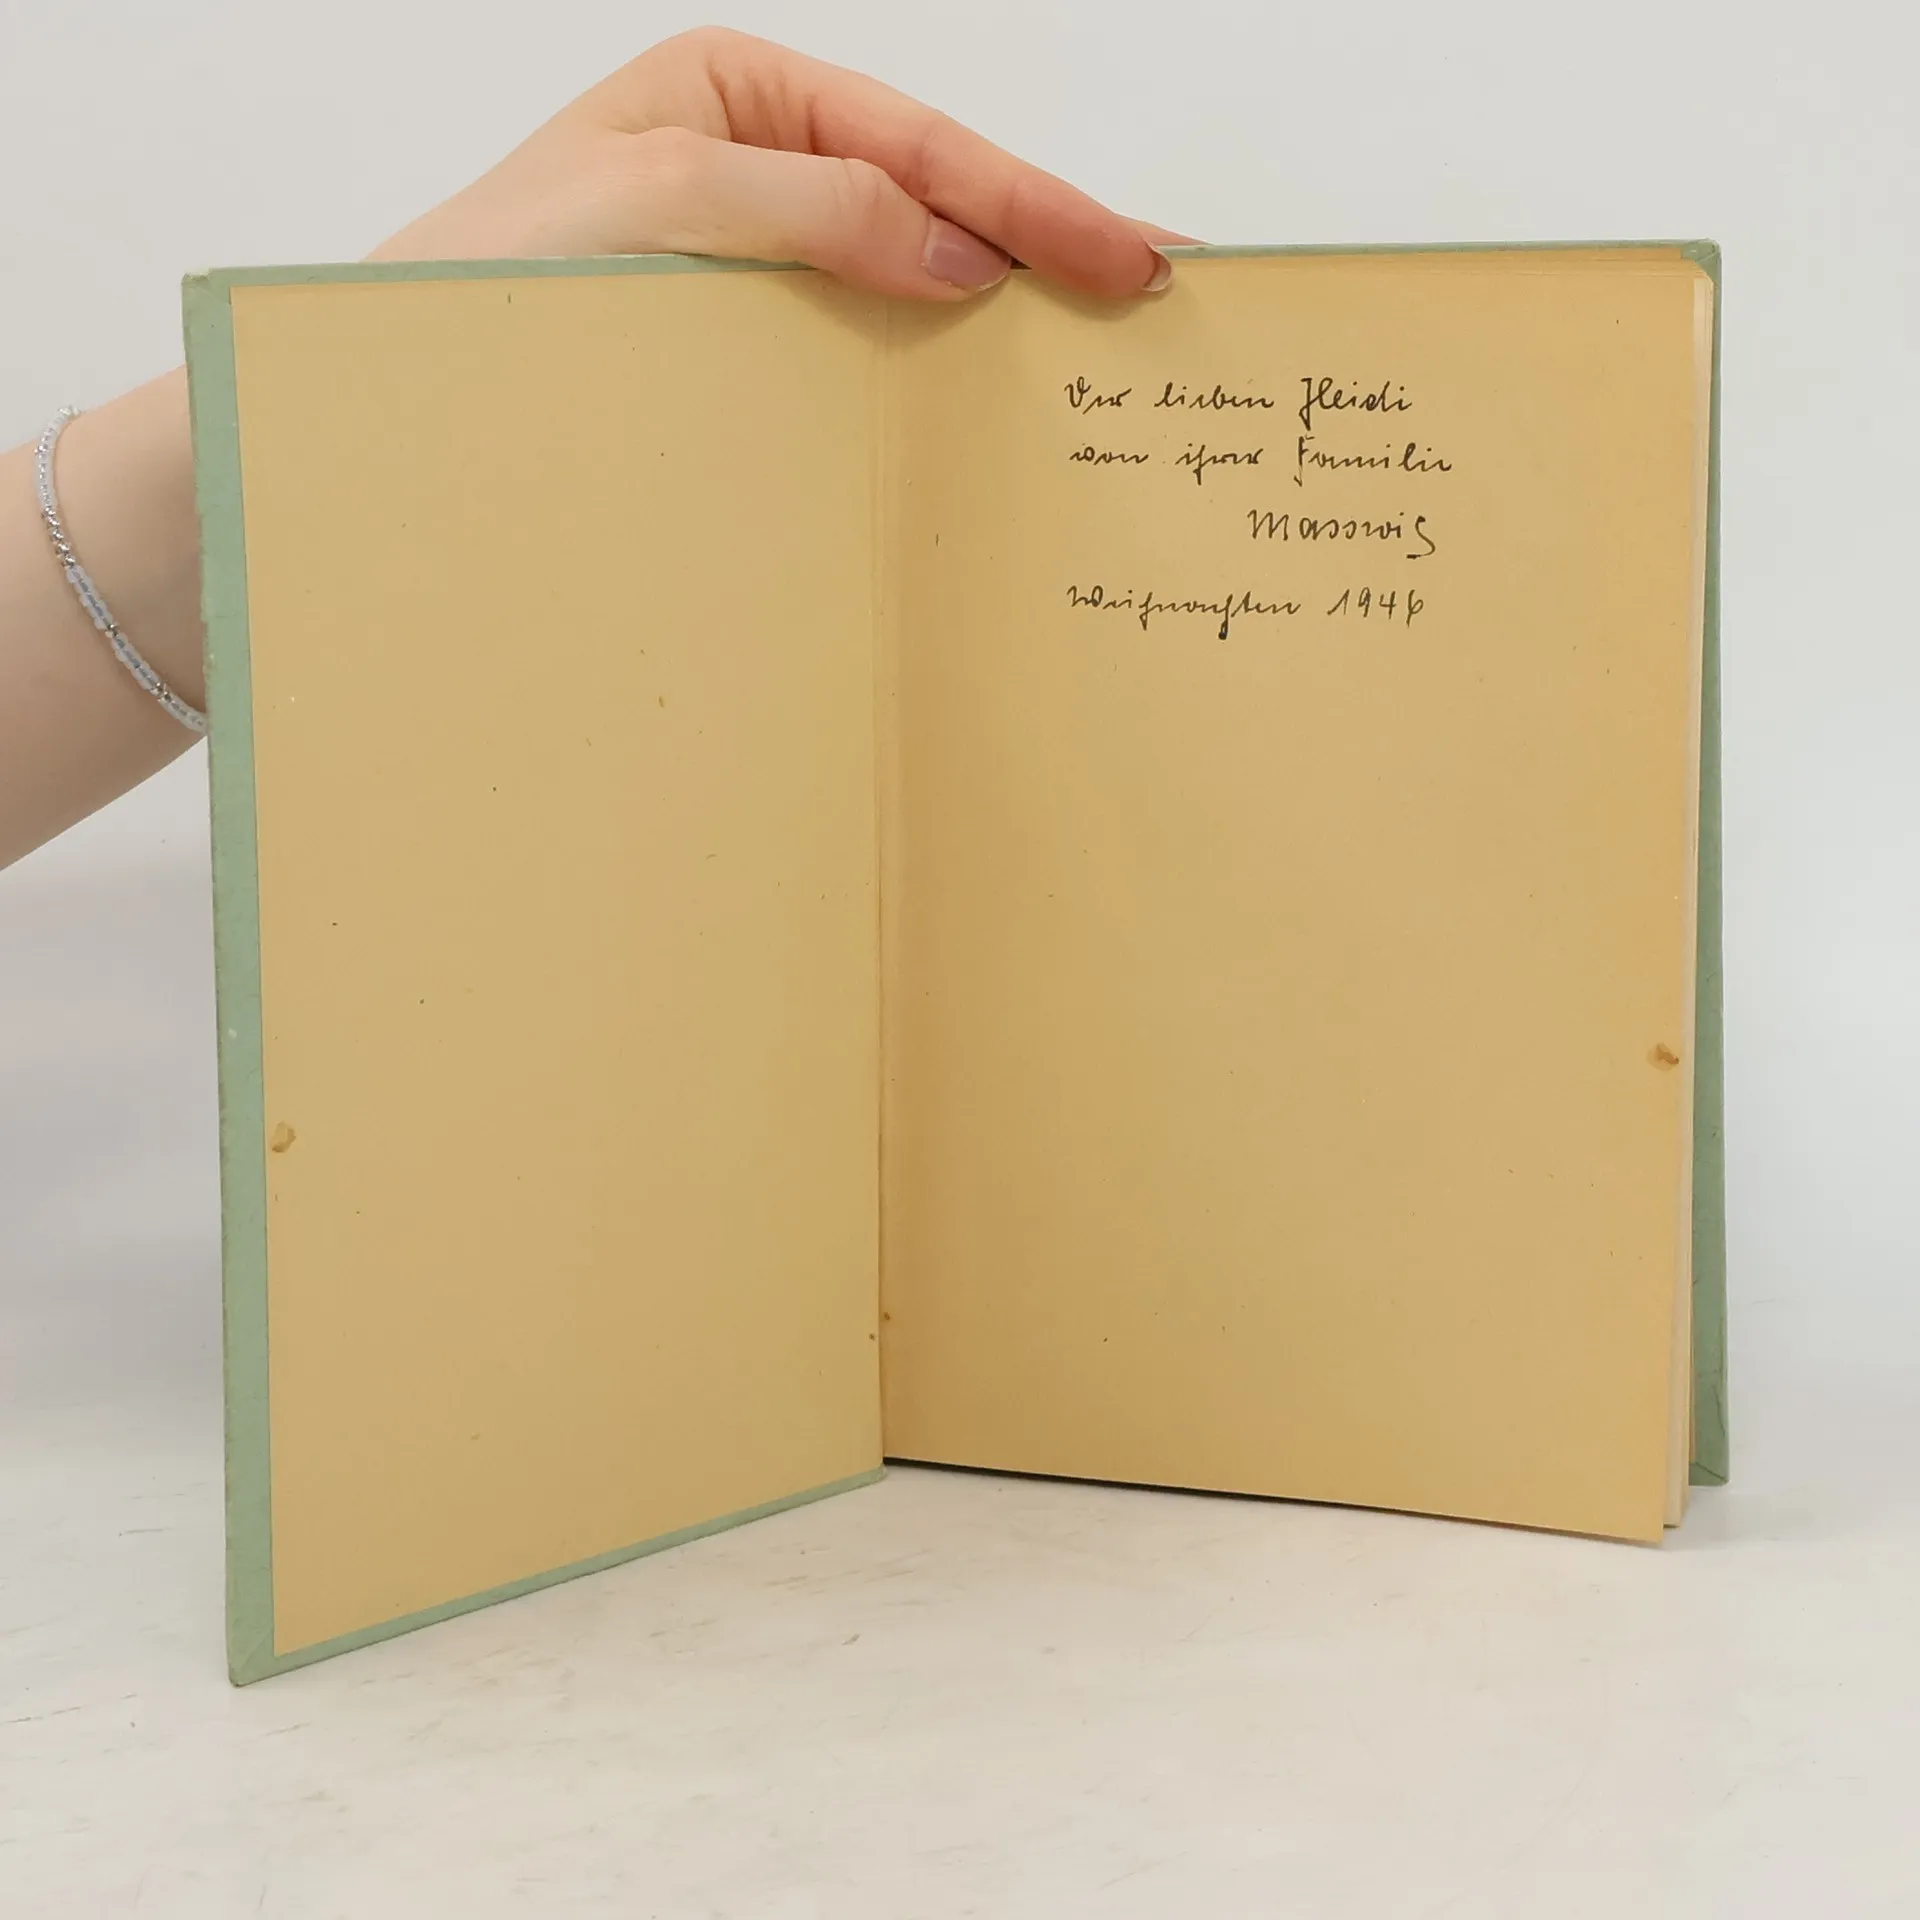 Der lieben Heidi
von ihrer Familie
Masswig
Weihnachten 1946